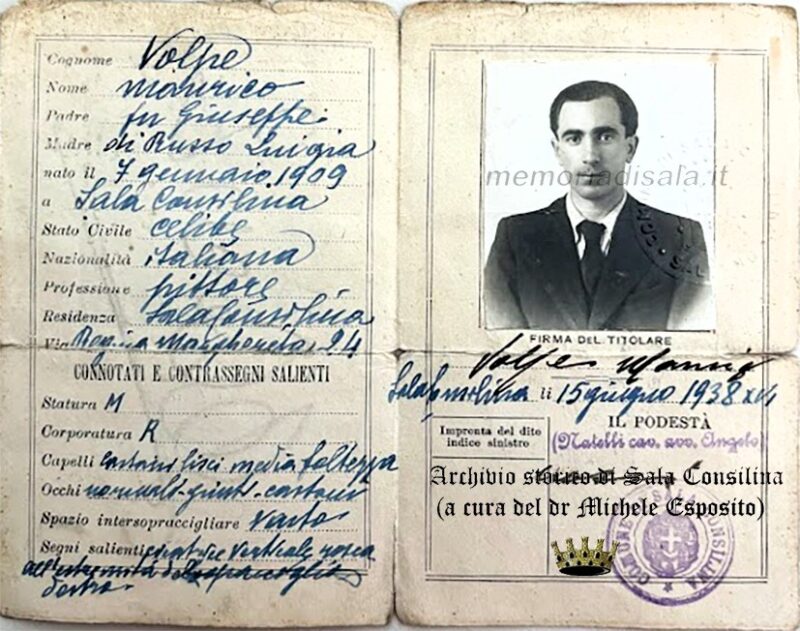 Cognome Volpe
Nome Maurico
Padre fu Giuseppe
Madre di Russo Luigia
nato il 7 gennaio 1909
a Sala Consilina
Stato Civile celibe
Nazionalità Italiana
Professione pittore
Residenza Sala Consilina
Via Regina Margherita 94
CONNOTATI E CONTRASSEGNI SALIENTI
Statura M
Corporatura R
Capelli castani lisci media foltezza
Occhi normali - castani
Spazio intersopraccigliare Vasto
Segni salienti cicatrice verticale rosea
all'estremità
destro
memoriadisala.it
FIRMA DEL TITOLARE
Volpe
Sala Consilina li 15 giugno 1938
Impronta del dito
indice sinistro
IL PODESTÀ
(Natelli cav. avv. Angelo)
Archivio storico di Sala Consilina
(a cura del dr Michele Esposito)
COMUNE DI SALA CONSILINA